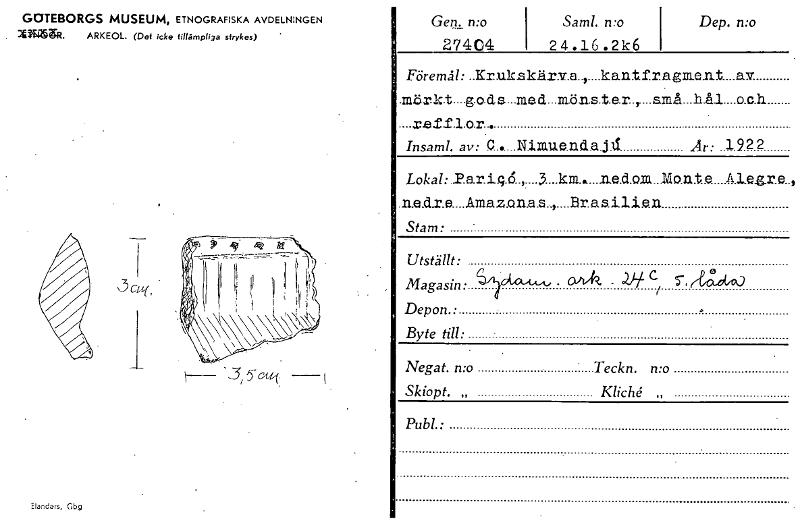 GÖTEBORGS MUSEUM, ETNOGRAFISKA AVDELNINGEN
ARKEOL. (Det icke tillämpliga strykes)
3 cm.
3,5 cm
Elanders, Gbg
Gen. n:o
27404
Saml. n:o
24.16.2k6
Dep. n:o
Föremål: Krukskärva, kantfragment av
mörkt gods med mönster, små hål och
refflor.
Insaml. av: C. Nimuendajú År: 1922
Lokal: Pariçó, 3 km. nedom Monte Alegre,
nedre Amazonas, Brasilien
Stam:
Utställt:
Magasin: Sydam. ark. 24 C, 5. låda
Depon.:
Byte till:
Negat. n:o Teckn. n:o
Skiopt. „ Kliché „
Publ.: